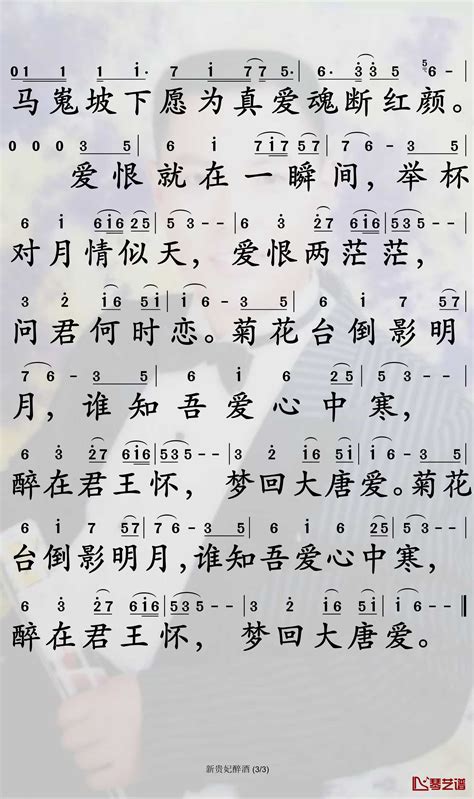 01 1 1 1· 7 i 7 7 5· 6· 3 3 5 5 6 -
马嵬坡下愿为真爱魂断红颜。
0 0 0 3 5 6 i 7 i 7 5 7 6 - 3 5
爱恨就在一瞬间，举杯
6 i i6 i6 25 5 3 - - 6 i i6 i6 25 5 3 - -
对月情似天，爱恨两茫茫，
3 2 i6 5i 6 - 3 5 6 i 7 5 7
问君何时恋。菊花台倒影明
7 6 - 3 5 6 i 6 25 5 3 - -
月，谁知吾爱心中寒，
6 3 27 6i6 i535 - - 6 3 2 i6 5i 6 - 3 5
醉在君王怀，梦回大唐爱。菊花
6 i 7 57 7 6 - 3 5 6 i 6 25 5 3 - -
台倒影明月，谁知吾爱心中寒，
6 3 27 6i6 i535 - - 6 3 2 i6 5i 6 - -
醉在君王怀，梦回大唐爱。
新贵妃醉酒 (3/3)
琴艺谱